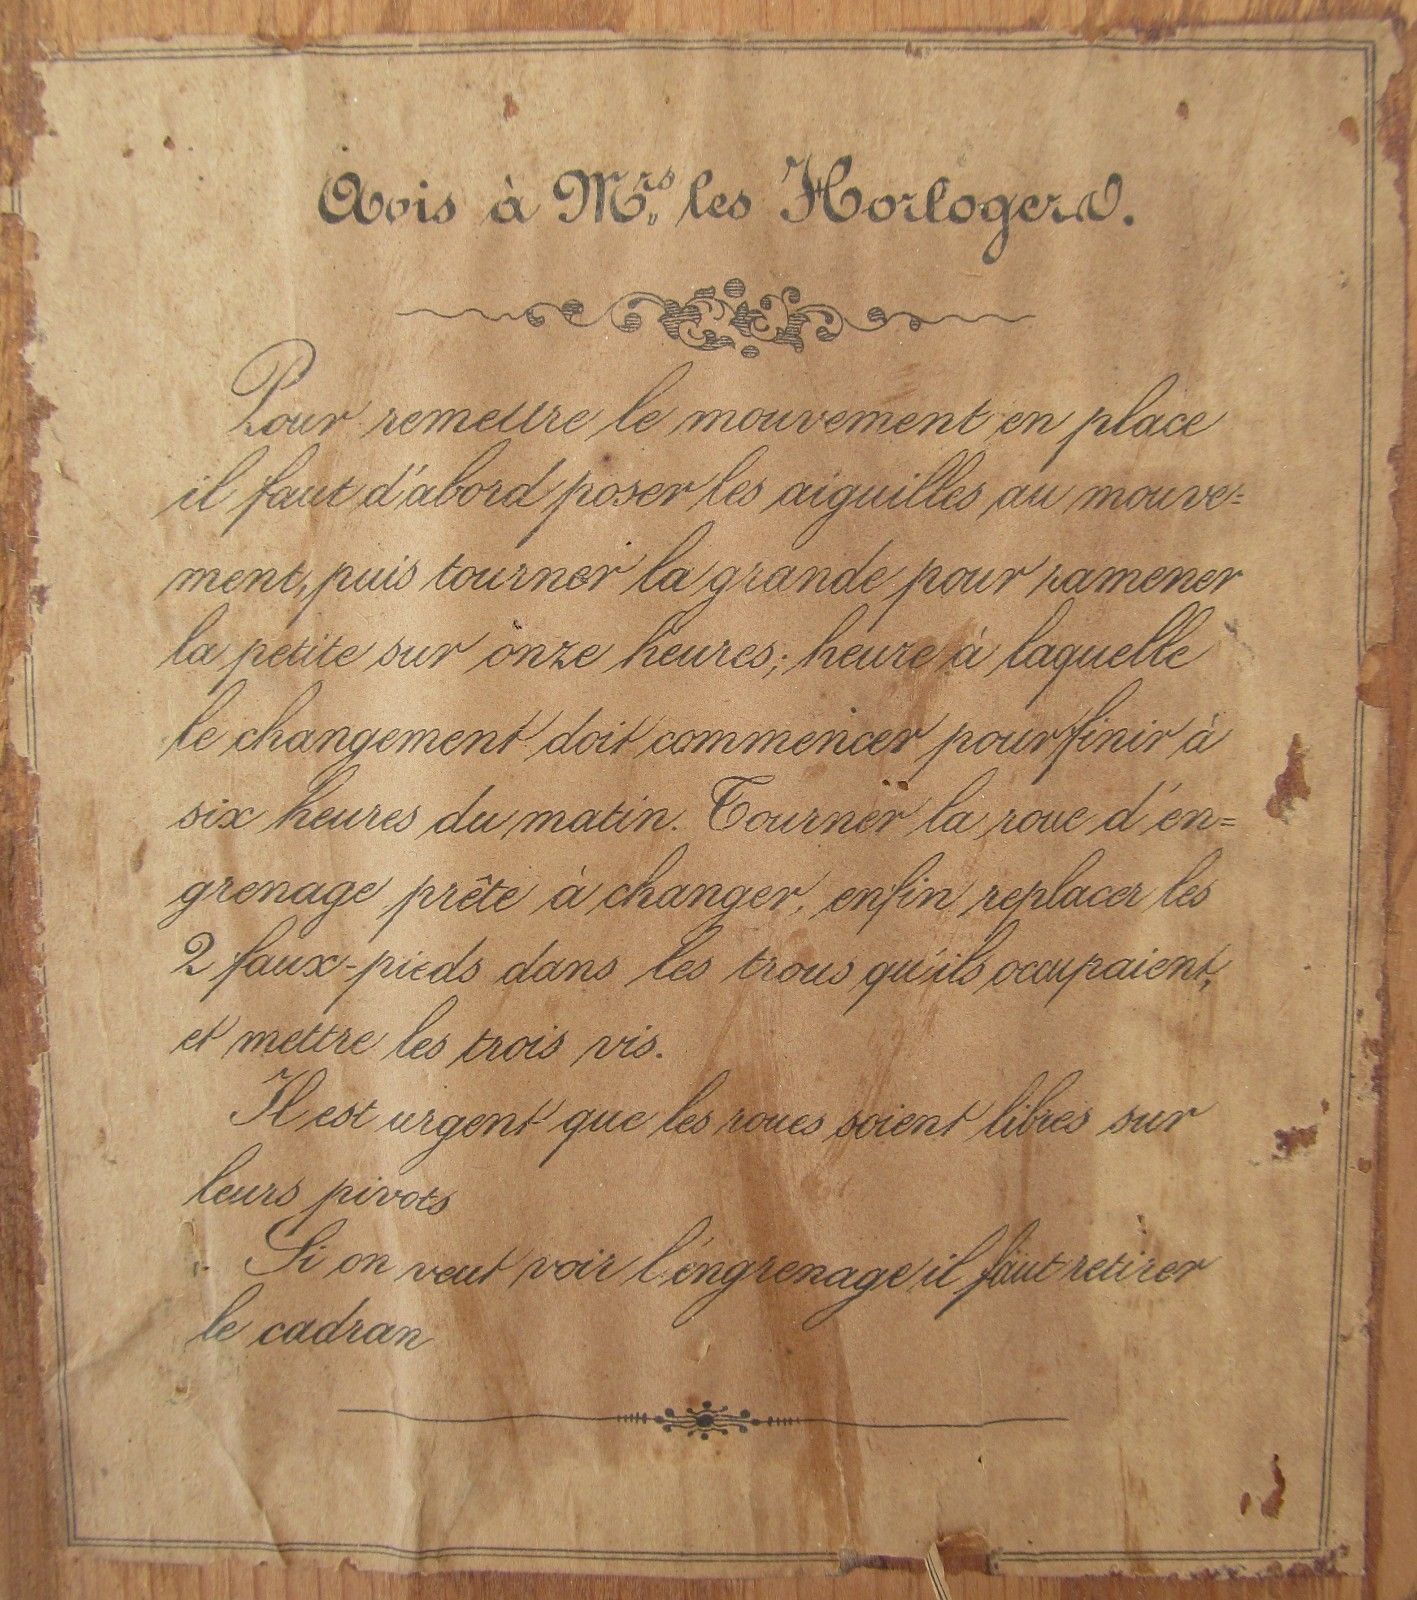 Avis à Mrs. les Horlogers.
Pour remettre le mouvement en place
il faut d'abord poser les aiguilles au mouve=
ment, puis tourner la grande pour ramener
la petite sur onze heures; heure à laquelle
le changement doit commencer pour finir à
six heures du matin. Tourner la roue d'en=
grenage prête à changer, enfin replacer les
2 faux-pieds dans les trous qu'ils occupaient,
et mettre les trois vis.
Il est urgent que les roues soient libres sur
leurs pivots
Si on veut voir l'engrenage il faut retirer
le cadran